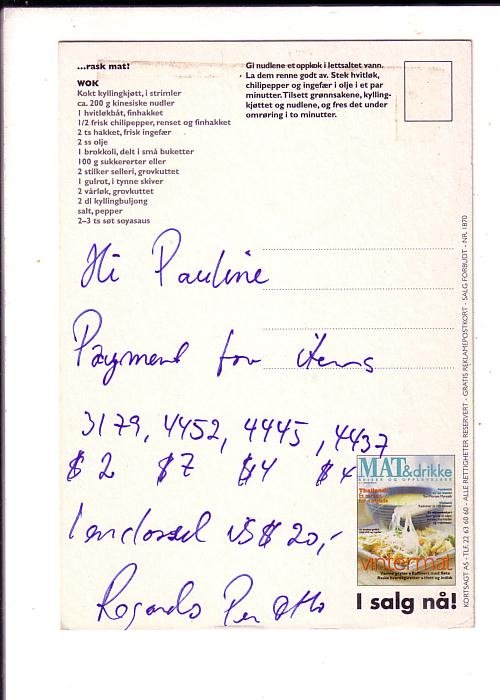 ...rask mat!
WOK
Kokt kyllingkjøtt, i strimler
ca. 200 g kinesiske nudler
1 hvitløkbåt, finhakket
1/2 frisk chilipepper, renset og finhakket
2 ts hakket, frisk ingefær
2 ss olje
1 brokkoli, delt i små buketter
100 g sukkererter eller
2 stilker selleri, grovkuttet
1 gulrot, i tynne skiver
2 vårløk, grovkuttet
2 dl kyllingbuljong
salt, pepper
2-3 ts søt soyasaus
Gi nudlene et oppkok i lettsaltet vann.
La dem renne godt av. Stek hvitløk,
chilipepper og ingefær i olje i et par
minutter. Tilsett grønnsakene, kylling-
kjøttet og nudlene, og fres det under
omrøring i to minutter.
Hi Pauline
Payment for items
3179, 4452, 4445, 4437
$2 $7 $4 $4
I endossed US$ 20,-
Regards Per Otto
MAT&drikke
REISER OG OPPLEVELSER
vintermat
I salg nå!
KORTSAGT AS - TLF. 22 63 60 60 - ALLE RETTIGHETER RESERVERT - GRATIS REKLAMEPOSTKORT - SALG FORBUDT - NR. 1870